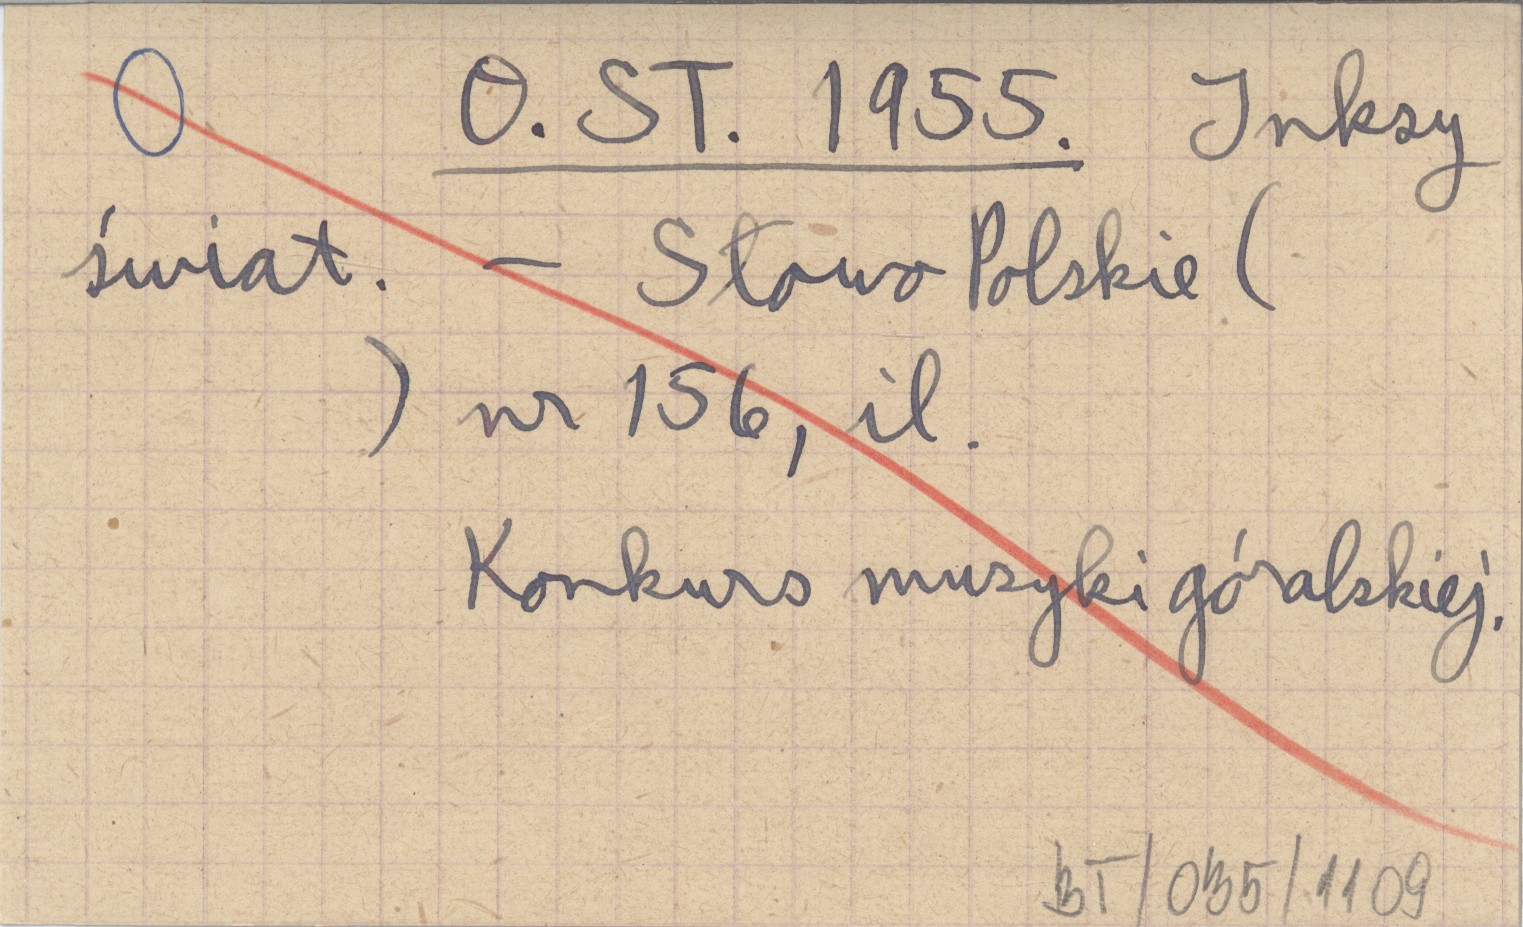 O. ST. 1955. Inkszy
świat. – Słowo Polskie (
) nr 156, il.
Konkurs muzyki góralskiej.
BT/035/1109